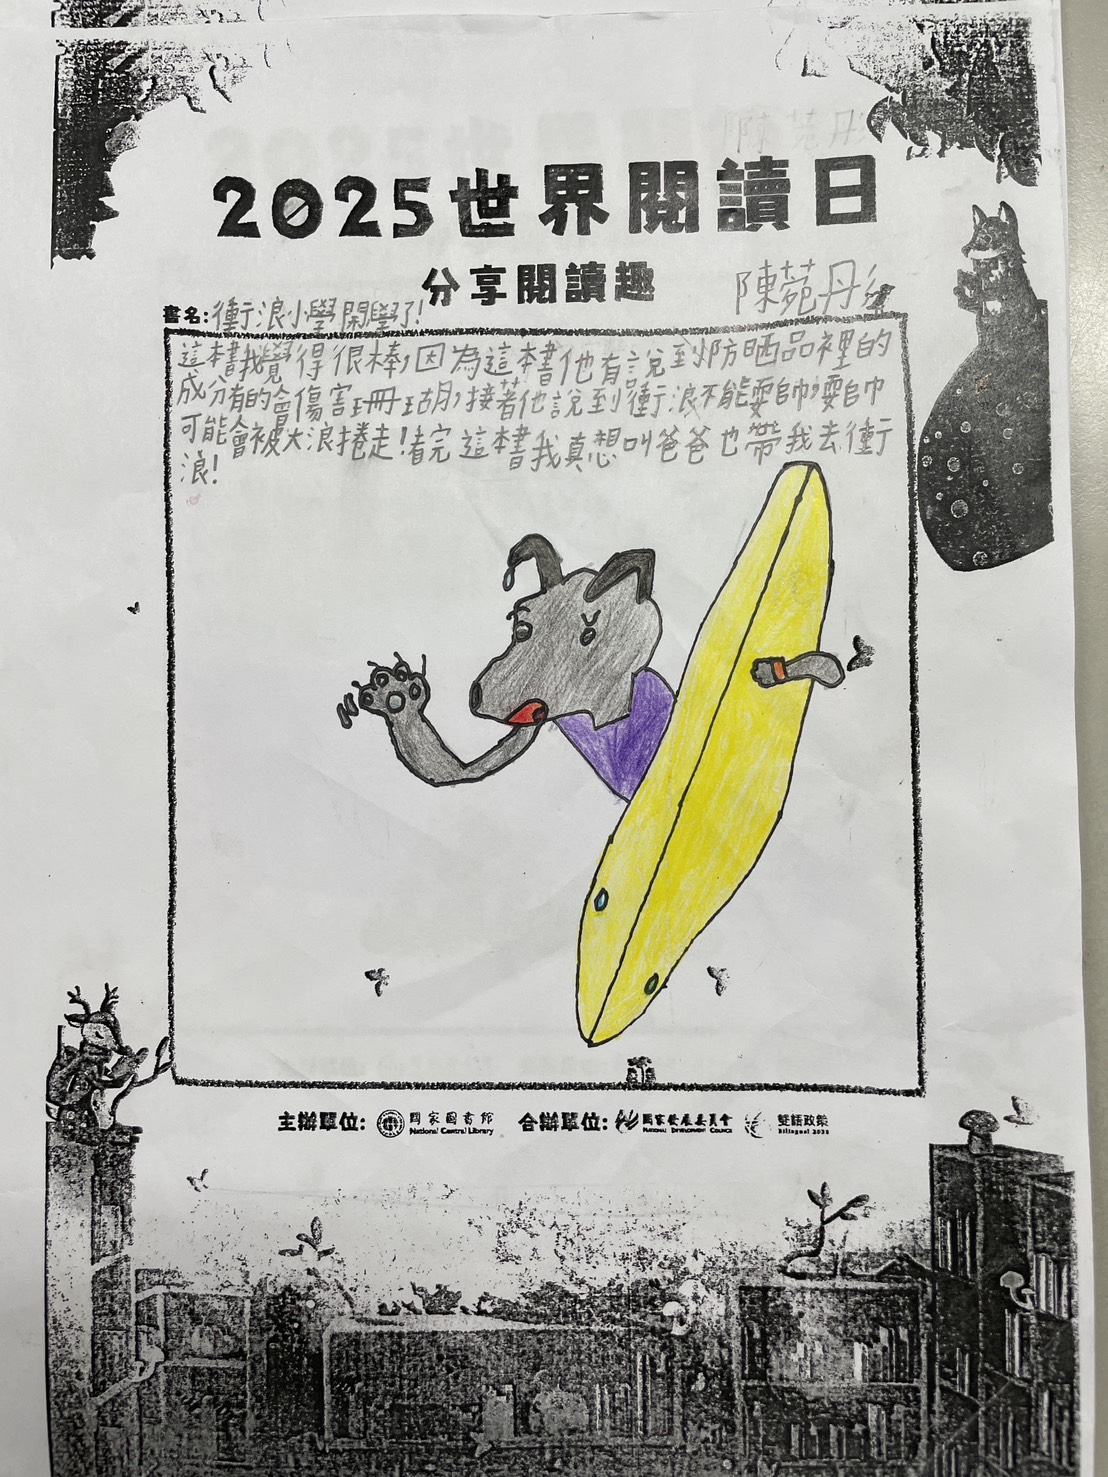 2025世界閱讀日
分享閱讀趣
陳菀彤
書名:衝浪小學開學了!
這本書我覺得很棒,因為這本書他有說到防晒品裡的
成分有的會傷害珊瑚,接著他說到衝浪不能耍帥,耍帥
可能會被大浪捲走!看完這本書我真想叫爸爸也帶我去衝
浪!
主辦單位: 國家圖書館 National Central Library 合辦單位: 國家發展委員會 NATIONAL DEVELOPMENT COUNCIL 雙語政策 Bilingual 2030